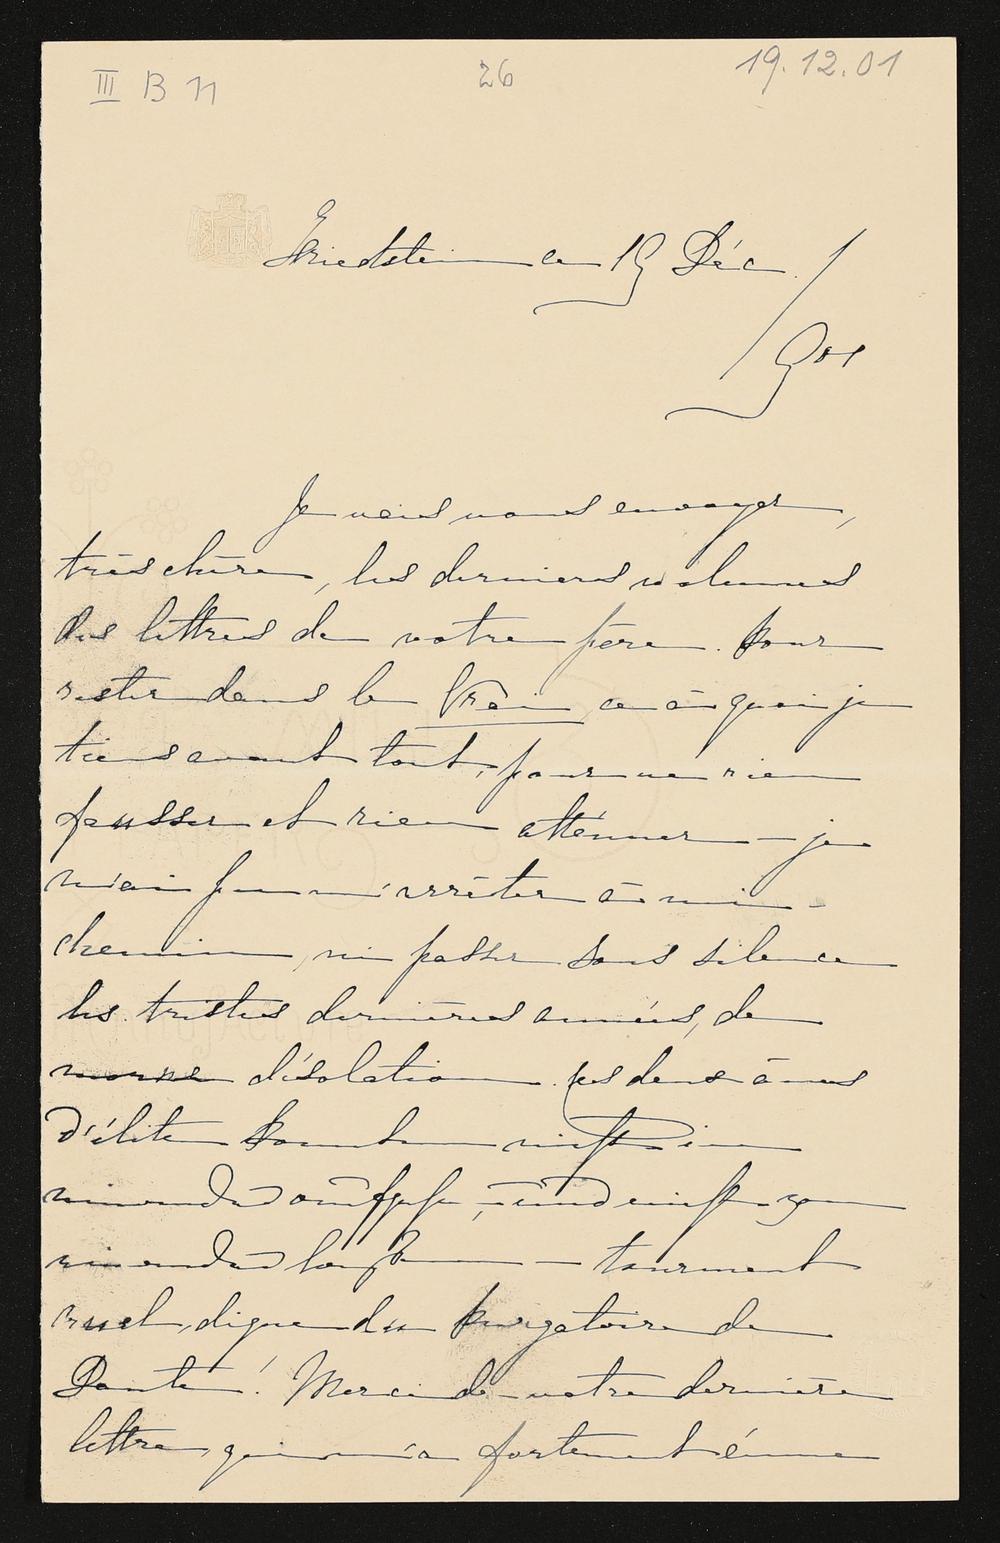 III B 11
26
19.12.01
Friedstein ce 19 Déc.
/901
Je viens vous envoyer,
très chère, les derniers volumes
des lettres de votre père. Pour
rester dans le Vrai ce à quoi je
tiens avant tout, pour ne rien
fausser et rien atténuer – je
n'ai pu m'arrêter à mi-
chemin, ni passer sous silence
les tristes dernières années, de
morne désolation. Ces deux âmes
d'élite konnten nicht
– und nicht von
einander lassen – tourment
cruel, digne du Purgatoire de
Dante! Merci de votre dernière
lettre qui m'a fortement émue